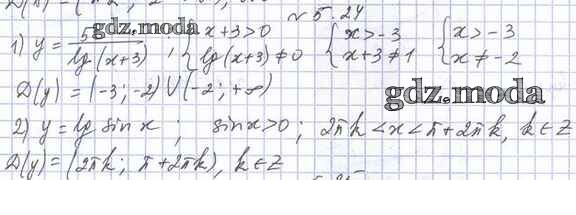 № 5.24
1) y = 5/lg(x+3) ; { x+3>0 lg(x+3)≠0 { x>-3 x+3≠1 { x>-3 x≠-2
gdz.moda
D(y) = (-3; -2) ∪ (-2; +∞)
gdz.moda
2) y = lg sin x ; sin x>0 ; 2πk < x < π + 2πk, k∈Z
D(y) = (2πk; π+2πk), k∈Z